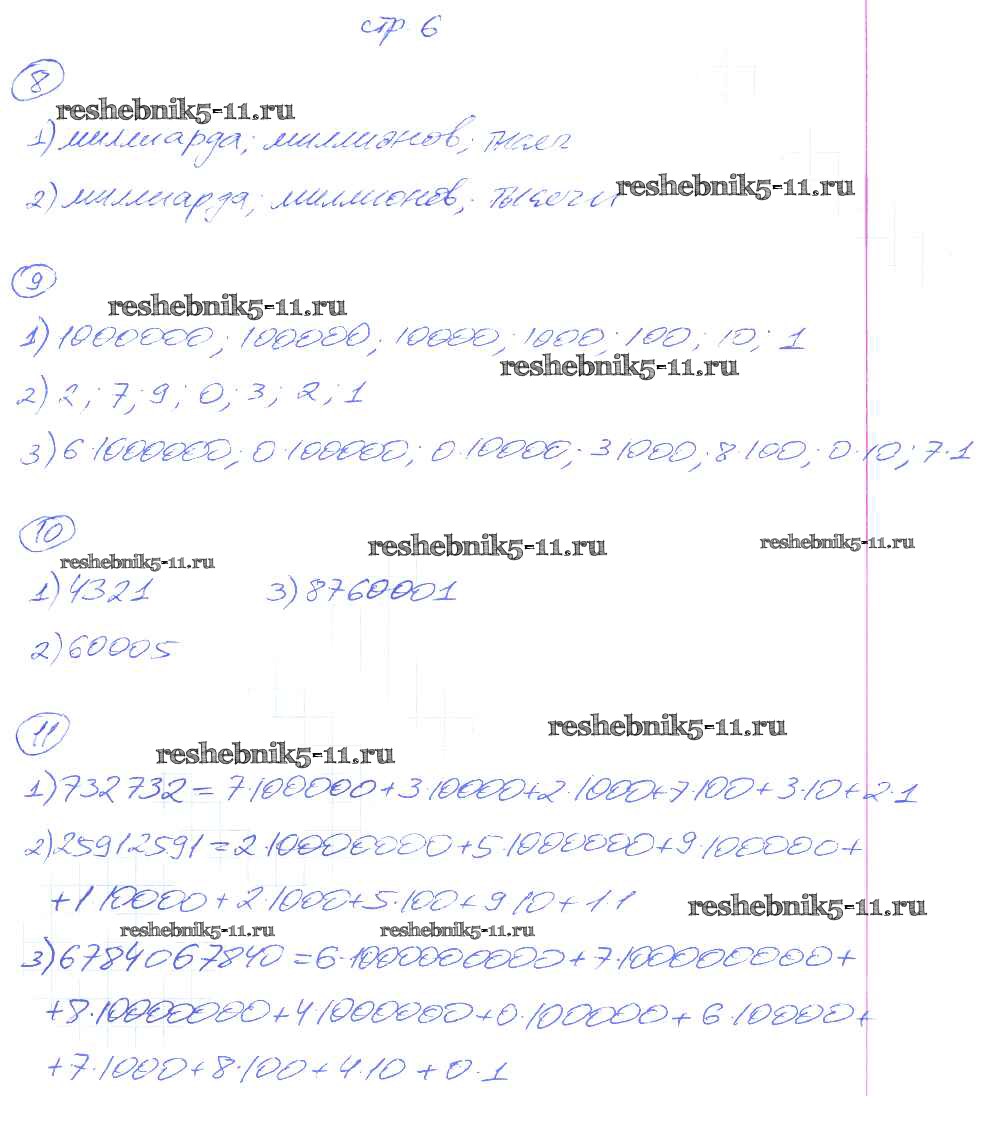 стр. 6
8
reshebnik5-11.ru
1) миллиарда; миллионов; тысяч
reshebnik5-11.ru
2) миллиарда; миллионов; тысячи
9
reshebnik5-11.ru
1) 1000000; 100000; 10000; 1000; 100; 10; 1
reshebnik5-11.ru
2) 2; 7; 9; 0; 3; 2; 1
3) 6·1000000; 0·100000; 0·10000; 3·1000; 8·100; 0·10; 7·1
10
reshebnik5-11.ru reshebnik5-11.ru reshebnik5-11.ru
1) 4321 3) 8760001
2) 60005
11
reshebnik5-11.ru
reshebnik5-11.ru
1) 732732 = 7·100000+3·10000+2·1000+7·100+3·10+2·1
2) 25912591 = 2·10000000+5·1000000+9·100000+
+1·10000+2·1000+5·100+9·10+1·1
reshebnik5-11.ru
reshebnik5-11.ru reshebnik5-11.ru
3) 6784067840 = 6·1000000000+7·100000000+
+8·10000000+4·1000000+0·100000+6·10000+
+7·1000+8·100+4·10+0·1